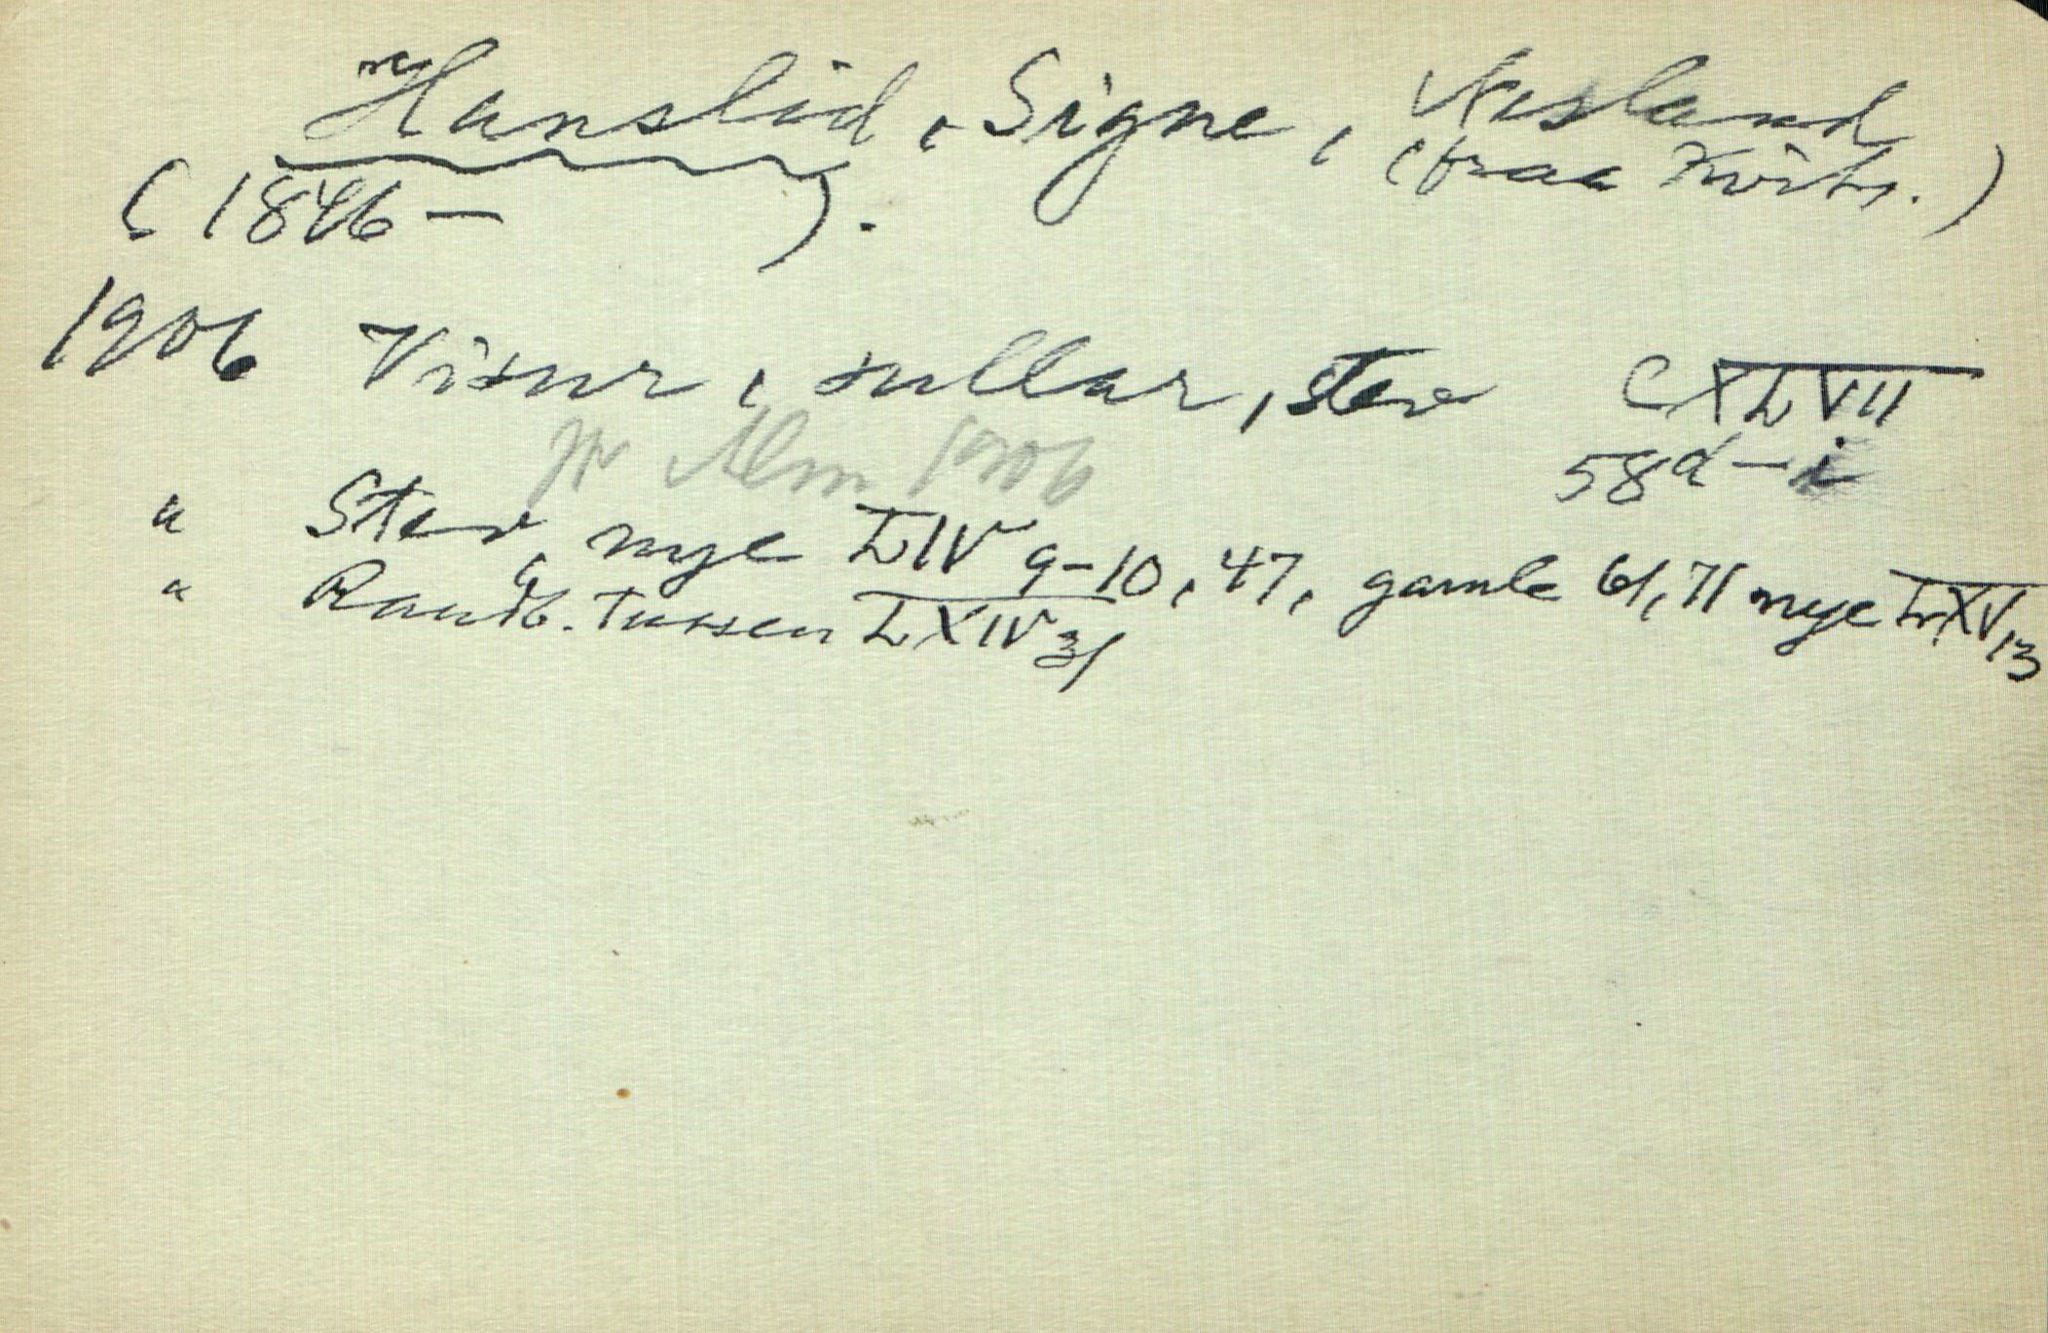 Hanslid, Signe, Aasland
(fraa Kvites.)
(1846 – ).
1906 Visur, sullar, stev CXLVII
58 d – i
Alm 1906
" Stev, nye LIV 9-10, 47, gamle 61, 71 nye LXV 13
" Raudb. tussen LXIV 31